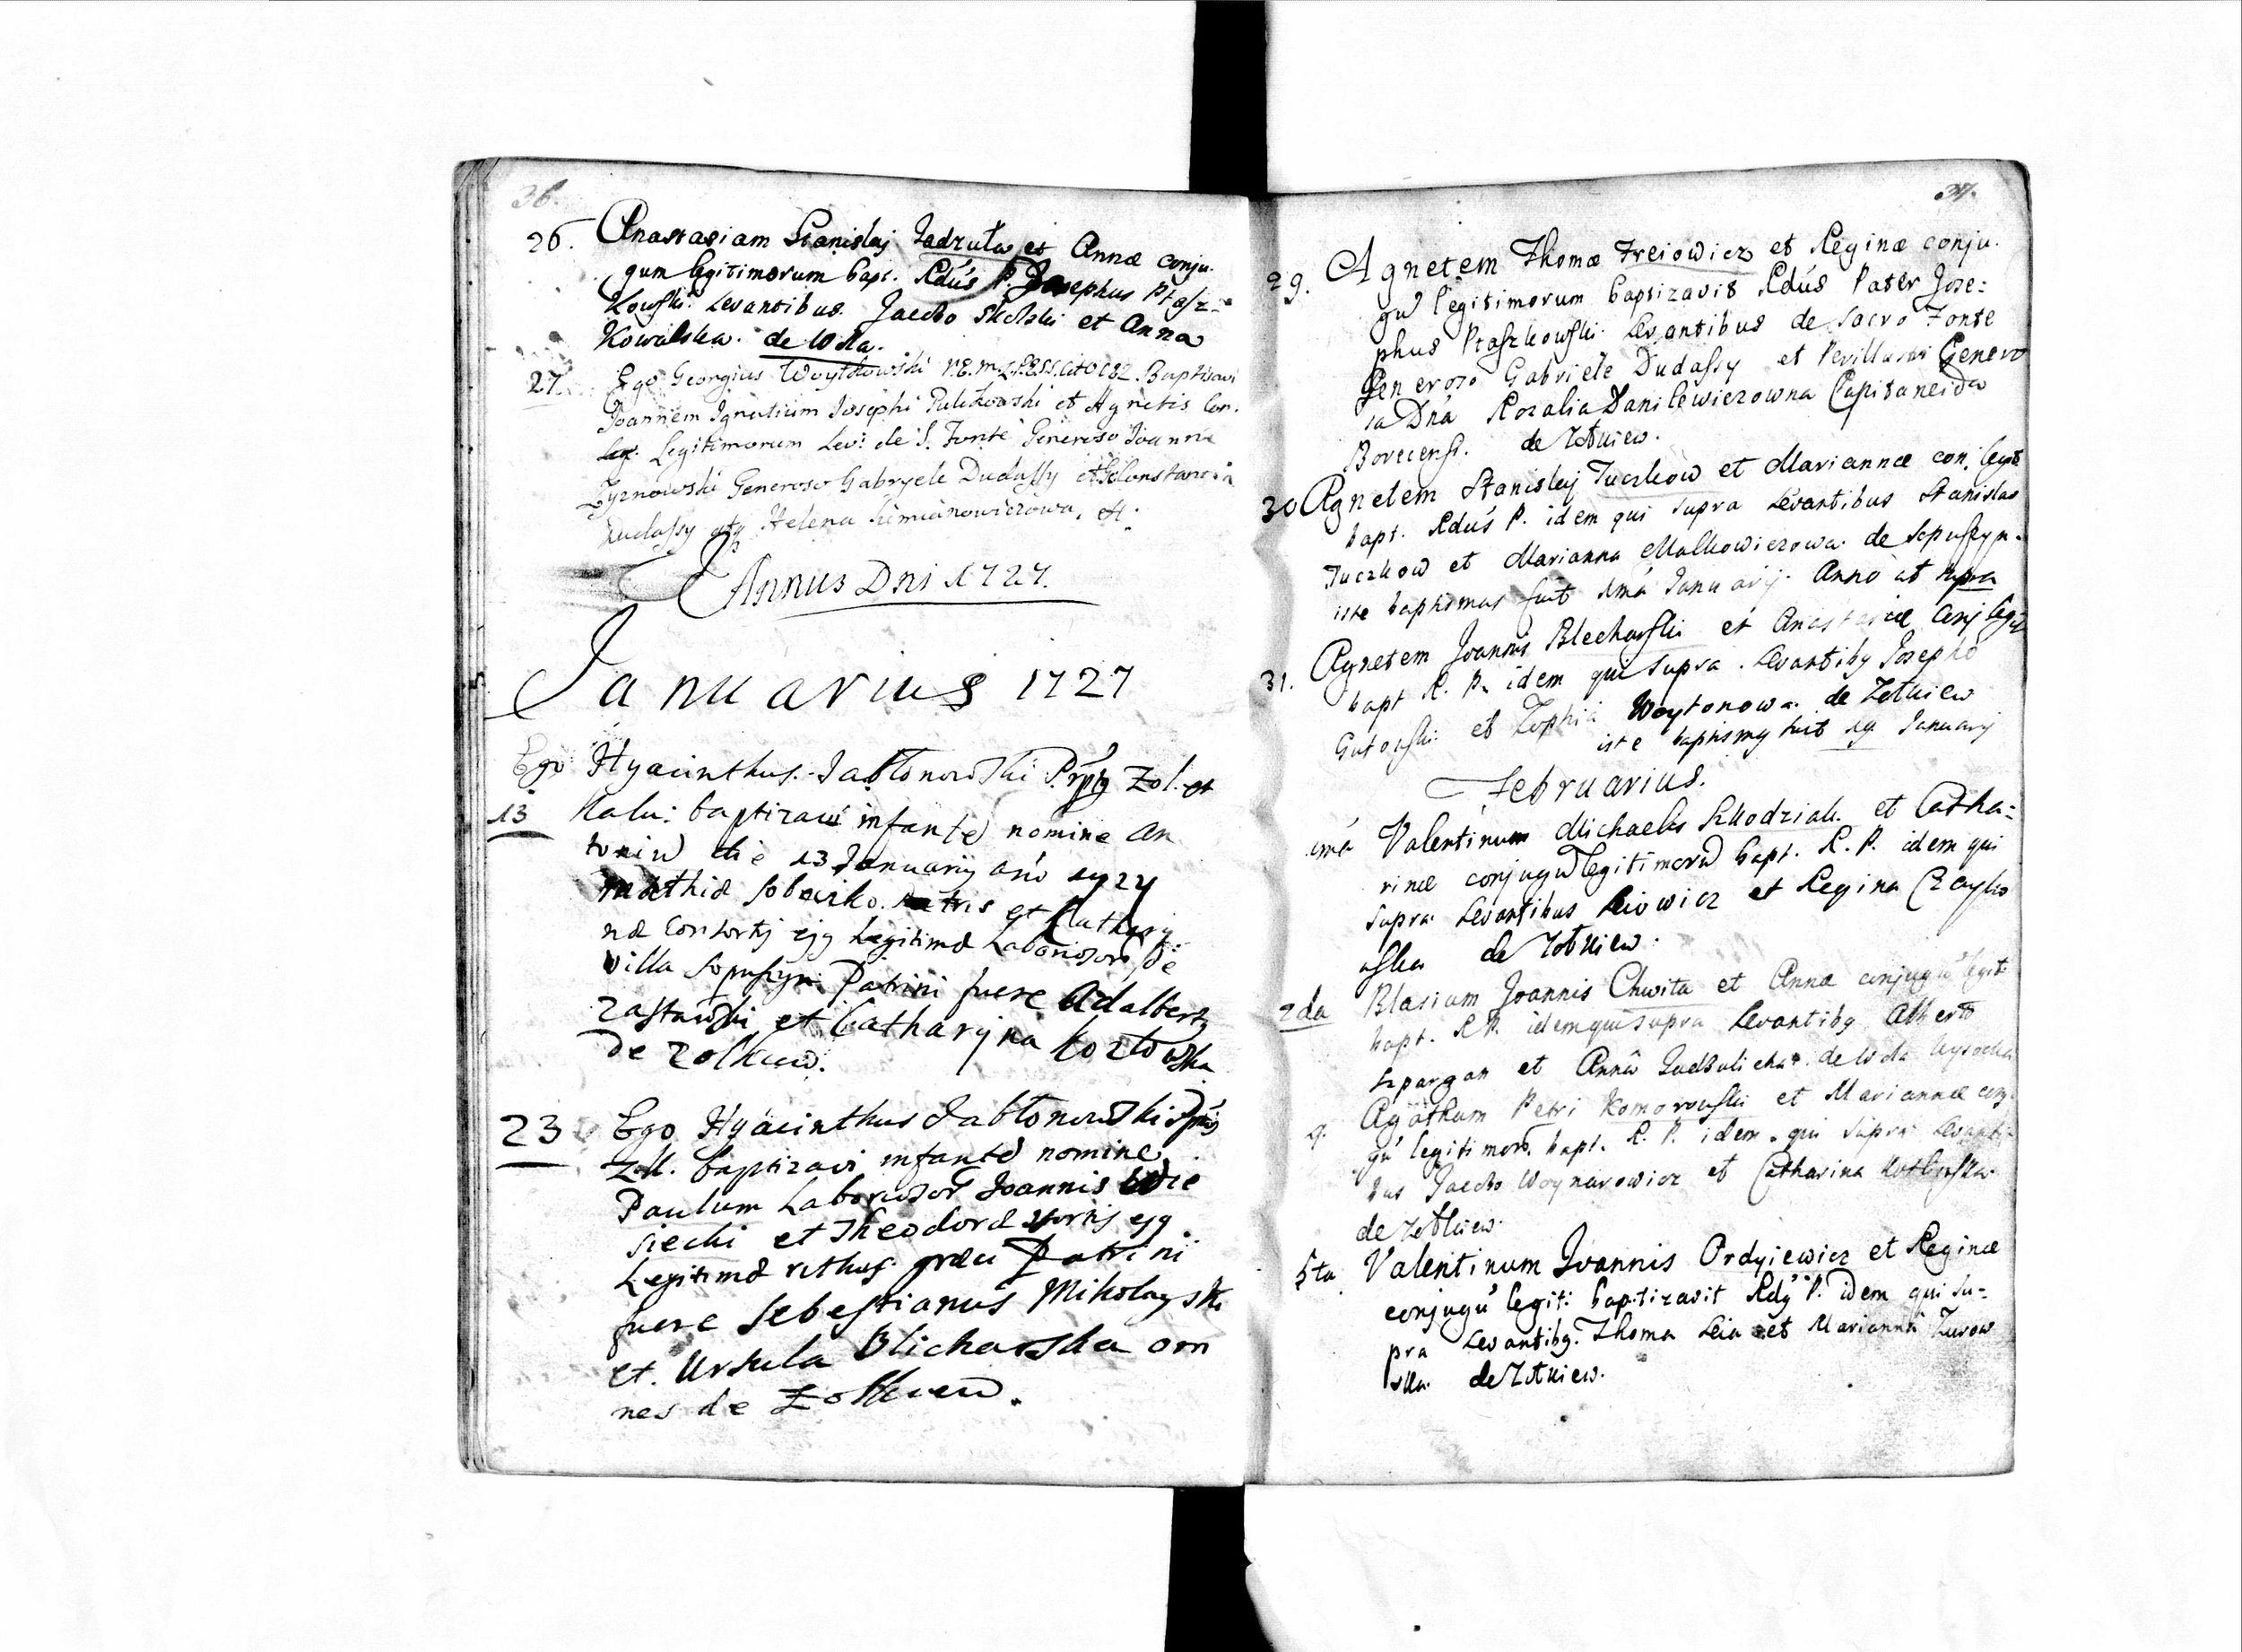 36.
26. Anastasiam Stanislaj Jadzuta et Annæ conju-
gum legitimorum bapt. Rdús P. Josephus Ptasz=
kowski. Levantibus. Jacobo Skolski et Anna
Kowalska. de Wla.
27. Ego Georgius Woytkowski Baptisavi
Joannem Ignatium Josephi et Agnetis Con.
Legitimorum Lev: de S. Fonte Generoso Joanne
Zyznowski Generoso Gabryele Dudassy et Constancia
Dudassy atq Helena Simianowiczowa.
Annus Dni 1727.
Januarius 1727
Ego Hyacinthus Jabłonowski Zol. et
13 Kalu: baptizavi infante nomine An
toniu die 13 January ano 1727
Mathiæ Sobczko. et Cathary
næ Consortis ejq Legitimæ Laboriosor de
villa Sopuszyn. Patrini fuere Adalbertq
Zastawski et Catharyna Kozłowska
de Zolkiew.
23 Ego Hyacinthus Jabłonowski
Z.K. baptizavi infante nomine
Paulum Laboriosor Joannis Wie
siecki et Theodoræ uxoris ejq
Legitimæ Patrini
fuere Sebestianus Mikolayski
et. Ursula Blicharska om
nes de Zolkiew.
37.
29. Agnetem Thomæ Freiowicz et Reginæ conju.
gu legitimorum baptizavit Rdús Pater Jose=
phus Ptaszkowski. Levantibus de Sacro Fonte
Generoso Gabriele Dudassy et Generо
sa Dná Rozalia Danilewiczowna Capitaneida
de Zołkiew.
30 Agnetem Stanislaj Tuczkow et Mariannæ conj. legit
bapt. Rdús P. idem qui supra Levantibus Stanislao
Tuczkow et Marianna Malkowiczowa. de Sopuszyn.
iste baptismus fuit January. Anno ut supra
31. Agnetem Joannis Blecharski et Anastasiæ conj legit
bapt R. P. idem qui supra. Levantibq Josepho
Gutowski et Zophia Woytonowa. de Zołkiew
iste baptismq fuit 19 January
Februarius.
ima Valentinum Michaelis Szkodziak. et Catha=
rinæ conjugu legitimoru bapt. R. P. idem qui
supra Levantibus Leiowicz et Regina Czayko
wska de Zołkiew.
2da Blasium Joannis Chwita et Annæ conjugu legit
bapt. R P. idem qui supra Levantibq Alberto
Szpargan et Anna de Wla Wysocka
Agatham Petri Komorowski et Mariannæ conj
gu legitimor. bapt. R. P. idem. qui supra Levanti
bus Jacobo Woynarowicz et Catharina
de Zołkiew.
5ta Valentinum Joannis Ordyiewicz et Reginæ
conjugu legiti: baptizavit Rdq P. idem qui su=
pra Levantibq. Thoma Leia et Marianna Zurow
ska. de Zołkiew.